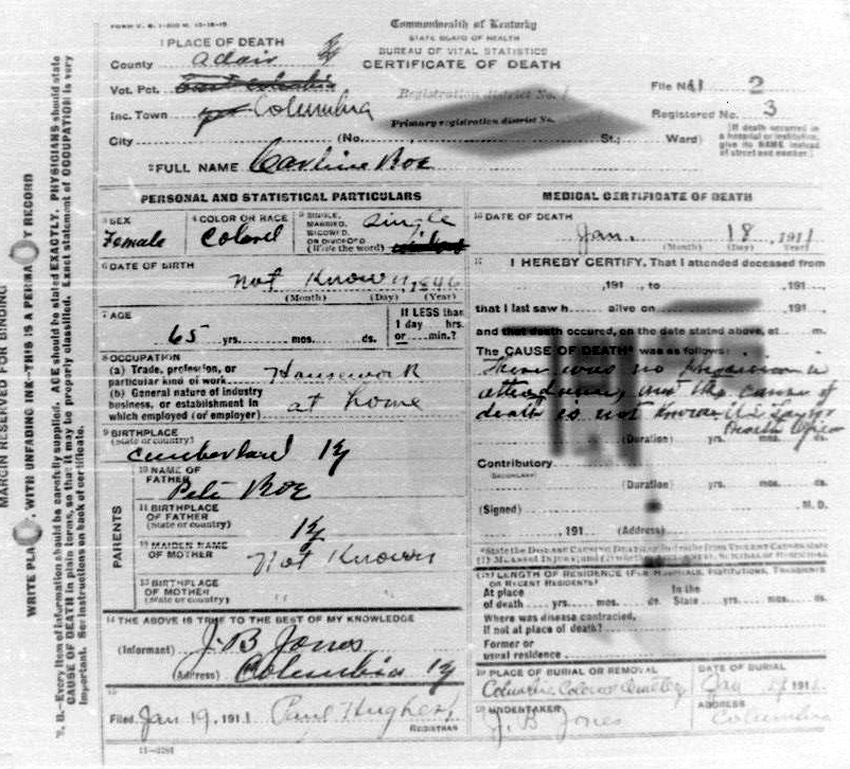 FORM V. S. 1-
Commonwealth of Kentucky
STATE BOARD OF HEALTH
BUREAU OF VITAL STATISTICS
CERTIFICATE OF DEATH
1 PLACE OF DEATH
County Adair Ky
Vot. Pct.
Inc. Town Columbia
City (No. St.; Ward)
Registration district No.
Primary registration district No.
File No. 2
Registered No. 3
[If death occurred in a hospital or institution, give its NAME instead of street and number.]
2 FULL NAME Carline Roe
PERSONAL AND STATISTICAL PARTICULARS
3 SEX
Female
4 COLOR OR RACE
Colored
5 SINGLE, MARRIED, WIDOWED, OR DIVORCED (Write the word)
Single
6 DATE OF BIRTH
Not Known, 1846
(Month) (Day) (Year)
7 AGE
65 yrs. mos. ds.
If LESS than 1 day hrs. or min.?
8 OCCUPATION
(a) Trade, profession, or particular kind of work Housework
(b) General nature of industry business, or establishment in which employed (or employer) at home
9 BIRTHPLACE
(State or country)
Cumberland Ky
PARENTS
10 NAME OF FATHER
Pete Roe
11 BIRTHPLACE OF FATHER (State or country)
Ky
12 MAIDEN NAME OF MOTHER
Not Known
13 BIRTHPLACE OF MOTHER (State or country)
" "
14 THE ABOVE IS TRUE TO THE BEST OF MY KNOWLEDGE
(Informant) J. B Jones
(Address) Columbia Ky
15
Filed Jan 19, 1911 Paul Hughes
REGISTRAR
11-3281
MEDICAL CERTIFICATE OF DEATH
16 DATE OF DEATH
Jan. 18, 1911
(Month) (Day) (Year)
17 I HEREBY CERTIFY, That I attended deceased from
, 191 , to , 191 ,
that I last saw h alive on , 191 ,
and that death occured, on the date stated above, at m.
The CAUSE OF DEATH* was as follows:
There was no Physician in
attendance, and the cause of
death is not known
Health Officer
(Duration) yrs. mos. ds.
Contributory
(SECONDARY)
(Duration) yrs. mos. ds.
(Signed) M. D.
, 191 (Address)
18 LENGTH OF RESIDENCE (FOR HOSPITALS, INSTITUTIONS, TRANSIENTS OR RECENT RESIDENTS)
At place of death yrs. mos. ds. In the State yrs. mos. ds.
Where was disease contracted, If not at place of death?
Former or usual residence
19 PLACE OF BURIAL OR REMOVAL
Columbia Colored Cemetery
DATE OF BURIAL
Jan 1911
20 UNDERTAKER
J. B Jones
ADDRESS
Columbia
MARGIN RESERVED FOR BINDING
WRITE PLA , WITH UNFADING INK—THIS IS A PERMA Y RECORD
N. B.—Every item of information should be carefully supplied. AGE should be stated EXACTLY. PHYSICIANS should state
CAUSE OF DEATH in plain terms, so that it may be properly classified. Exact statement of OCCUPATION is very
important. See instructions on back of certificate.